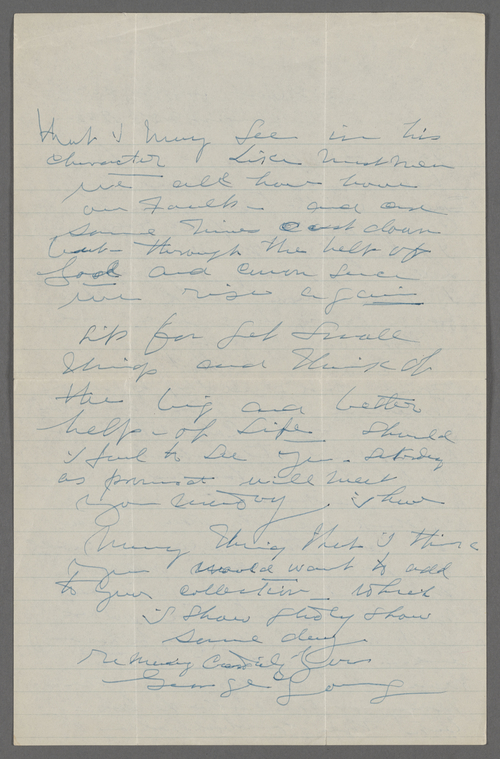 that I may See in his
character Like most men
we all have have
our Faults - and are
some times cast down
but through the help of
God and
we rise again
Lits for get Small
things and think of
the big and better
help - of Life Should
I fail to See you. Saturday
as promist will meet
you Monday. I have
many thing that I think
you would want to add
to your collection - which
I Shall Show
some day.
Remain Cordialy Yours
George Young